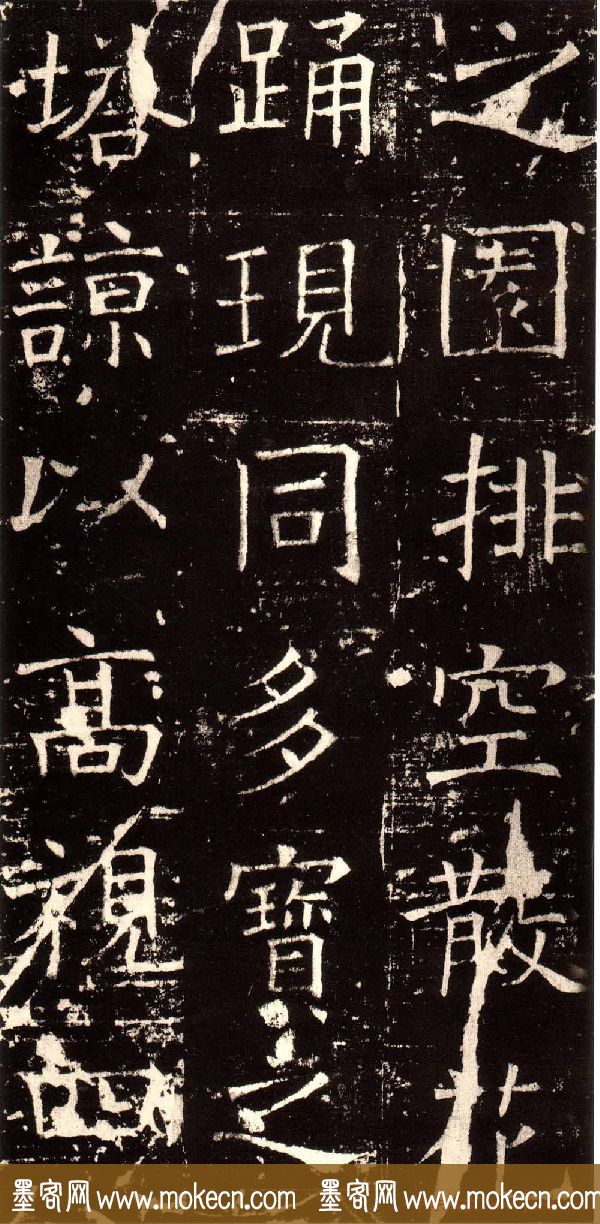 之圓排空散花
踊現同多寶之
塔諒以高視四
墨客网 www.mokecn.com 墨客网 www.mokecn.com